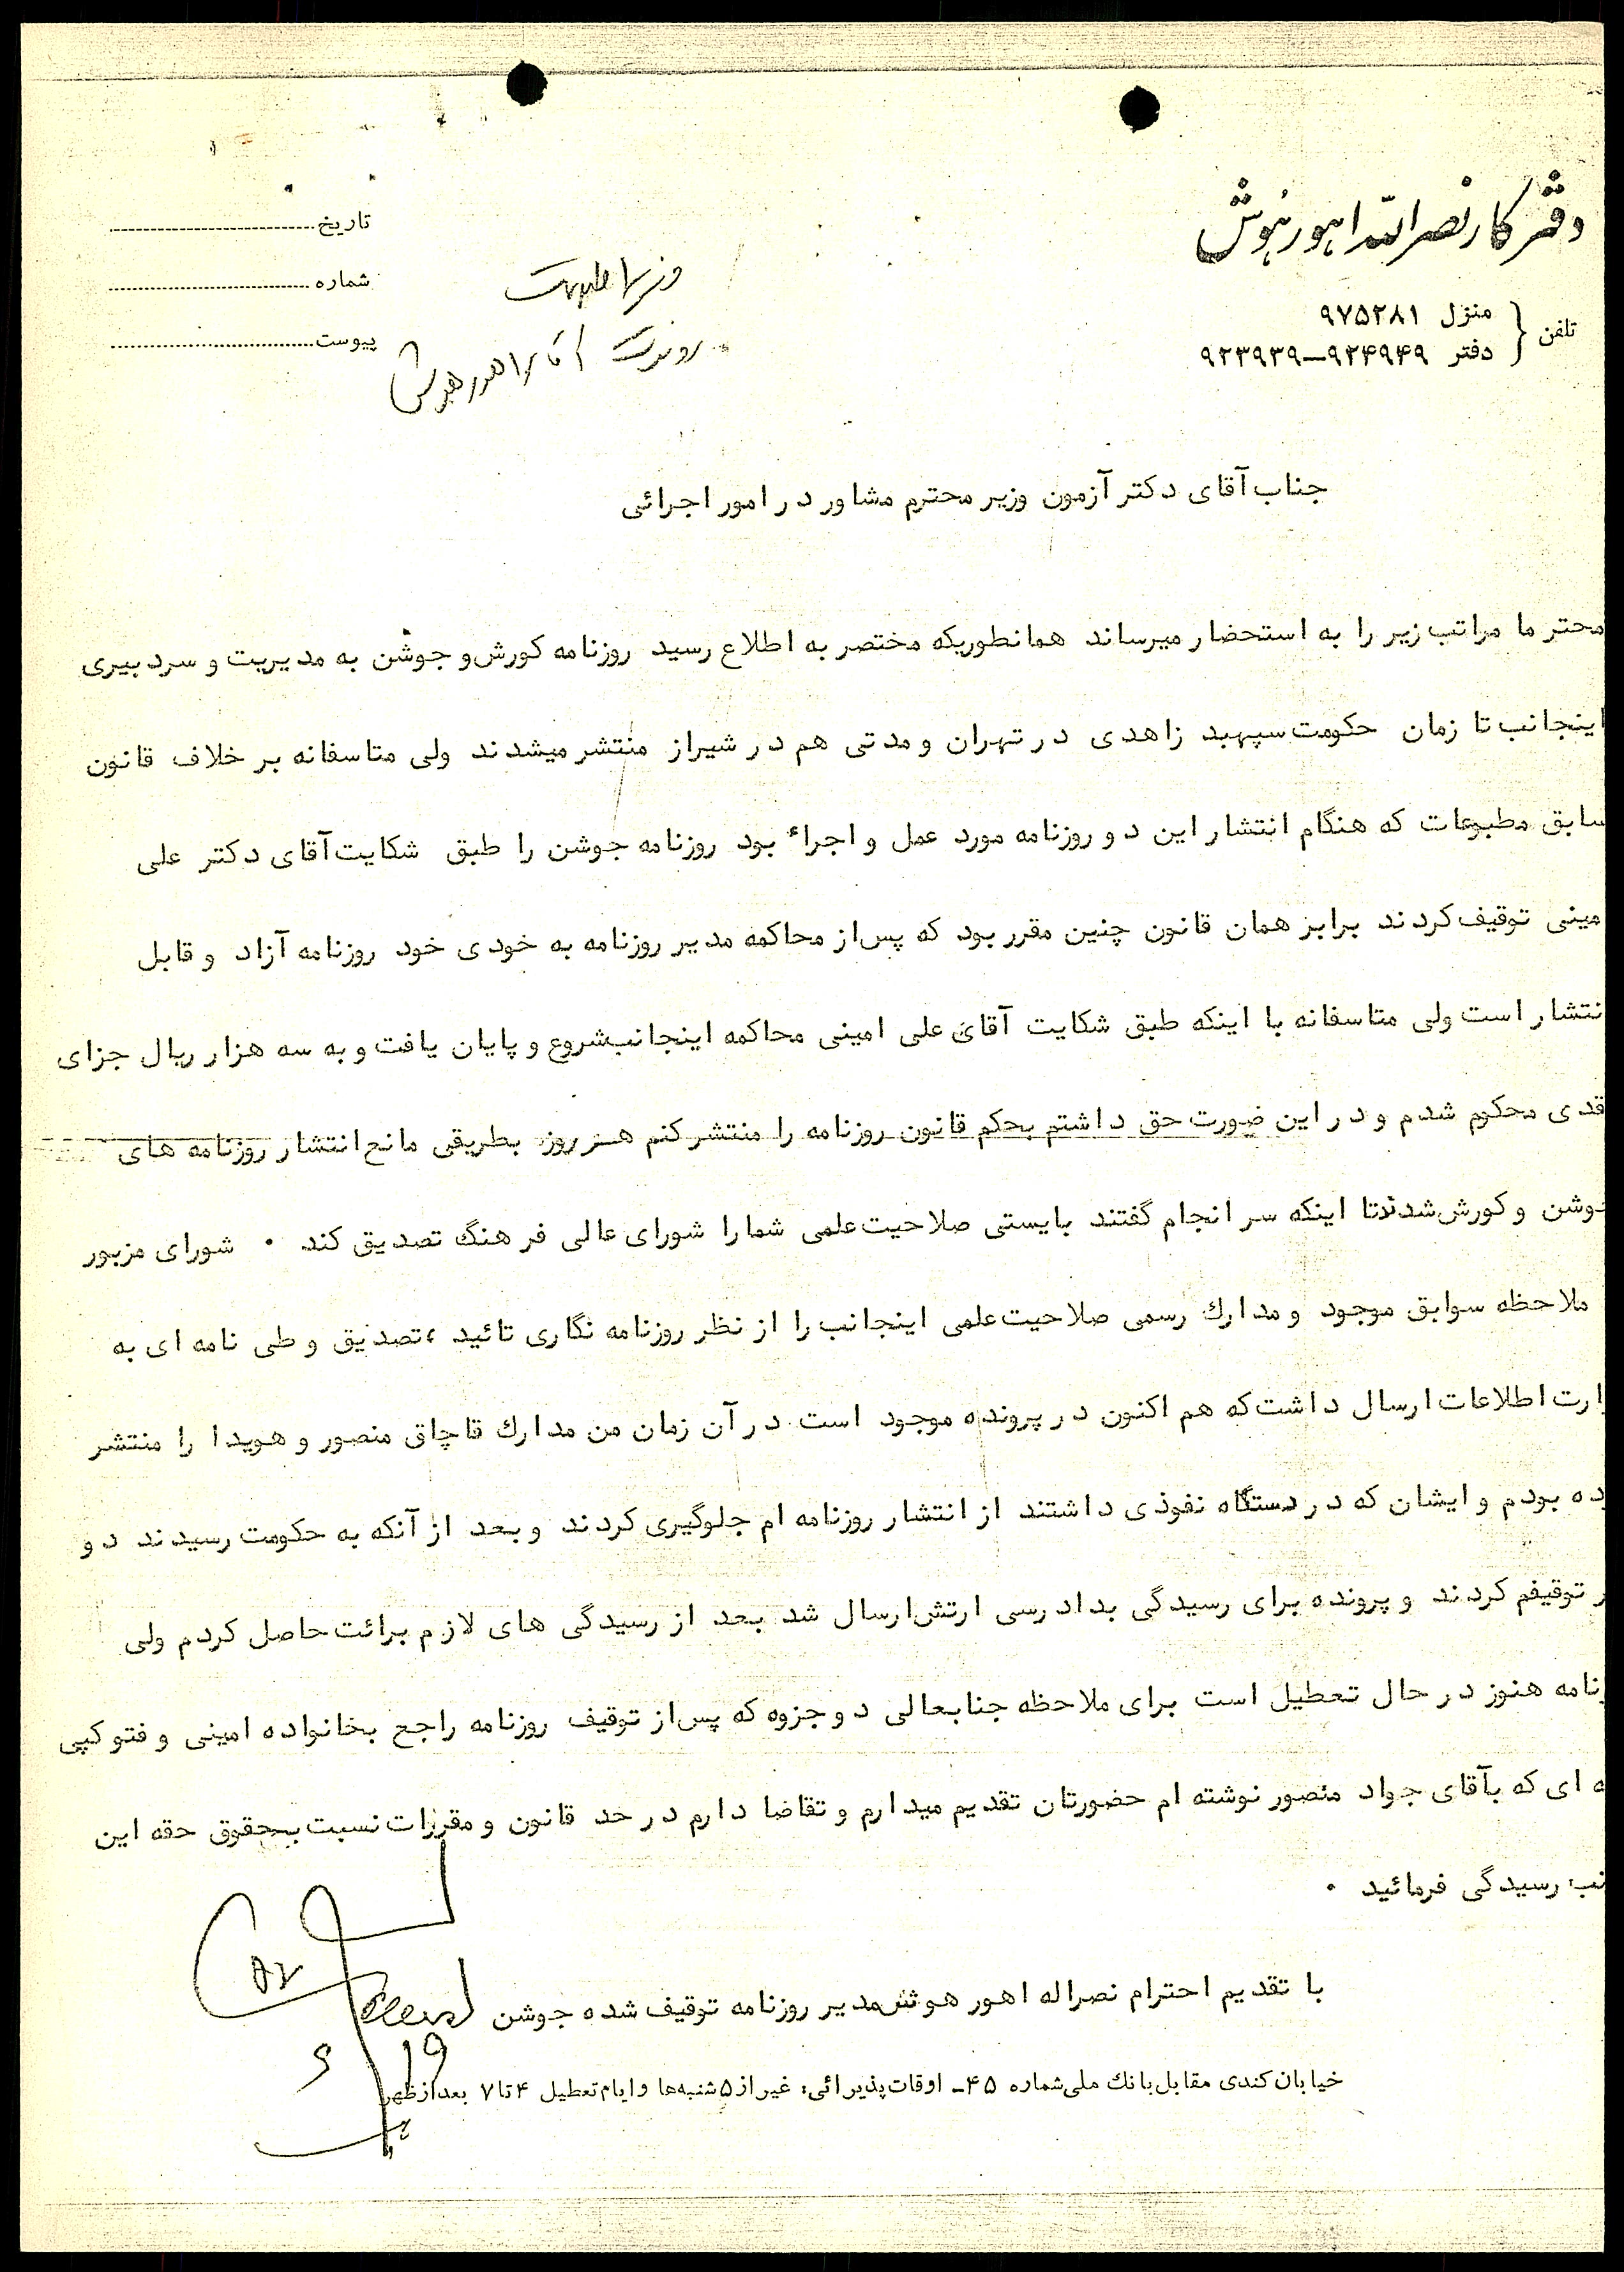 دفتر کار نصرالله اهورهوش
تلفن { منزل ۹۷۵۲۸۱
دفتر ۹۲۴۹۴۹-۹۲۳۹۳۹
تاریخ
شماره
پیوست
آقای اهورهوش
جناب آقای دکتر آزمون وزیر محترم مشاور در امور اجرائی
محترما مراتب زیر را به استحضار میرساند همانطوریکه مختصر به اطلاع رسید روزنامه کورش و جوشن به مدیریت و سردبیری
اینجانب تا زمان حکومت سپهبد زاهدی در تهران و مدتی هم در شیراز منتشر میشدند ولی متاسفانه بر خلاف قانون
سابق مطبوعات که هنگام انتشار این دو روزنامه مورد عمل و اجراء بود روزنامه جوشن را طبق شکایت آقای دکتر علی
مینی توقیف کردند برابر همان قانون چنین مقرر بود که پس از محاکمه مدیر روزنامه به خودی خود روزنامه آزاد و قابل
نتشار است ولی متاسفانه با اینکه طبق شکایت آقای علی امینی محاکمه اینجانب شروع و پایان یافت و به سه هزار ریال جزای
قدی محکوم شدم و در این صورت حق داشتم بحکم قانون روزنامه را منتشر کنم هر روز بطریقی مانع انتشار روزنامه های
جوشن و کورش شدند تا اینکه سر انجام گفتند بایستی صلاحیت علمی شما را شورای عالی فرهنگ تصدیق کند ۰ شورای مزبور
ملاحظه سوابق موجود و مدارك رسمی صلاحیت علمی اینجانب را از نظر روزنامه نگاری تائید ، تصدیق و طی نامه ای به
ارت اطلاعات ارسال داشت که هم اکنون در پرونده موجود است در آن زمان من مدارك قاچاق منصور و هویدا را منتشر
ده بودم و ایشان که در دستگاه نفوذی داشتند از انتشار روزنامه ام جلوگیری کردند و بعد از آنکه به حکومت رسیدند دو
ر توقیفم کردند و پرونده برای رسیدگی بدادرسی ارتش ارسال شد بعد از رسیدگی های لازم برائت حاصل کردم ولی
زنامه هنوز در حال تعطیل است برای ملاحظه جنابعالی دو جزوه که پس از توقیف روزنامه راجع بخانواده امینی و فتوکپی
ه ای که بآقای جواد منصور نوشته ام حضورتان تقدیم میدارم و تقاضا دارم در حد قانون و مقررات نسبت بحقوق حقه این
نب رسیدگی فرمائید ۰
با تقدیم احترام نصراله اهور هوش مدیر روزنامه توقیف شده جوشن
خیابان کندی مقابل بانك ملی شماره ۴۵ـ اوقات پذیرائی: غیر از ۵شنبه‌ها و ایام تعطیل ۴ تا ۷ بعدازظهر